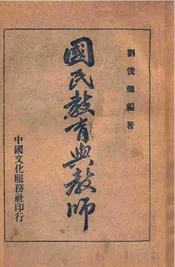 劉俊卿編著
國民教育與教師
中國文化服務社印行